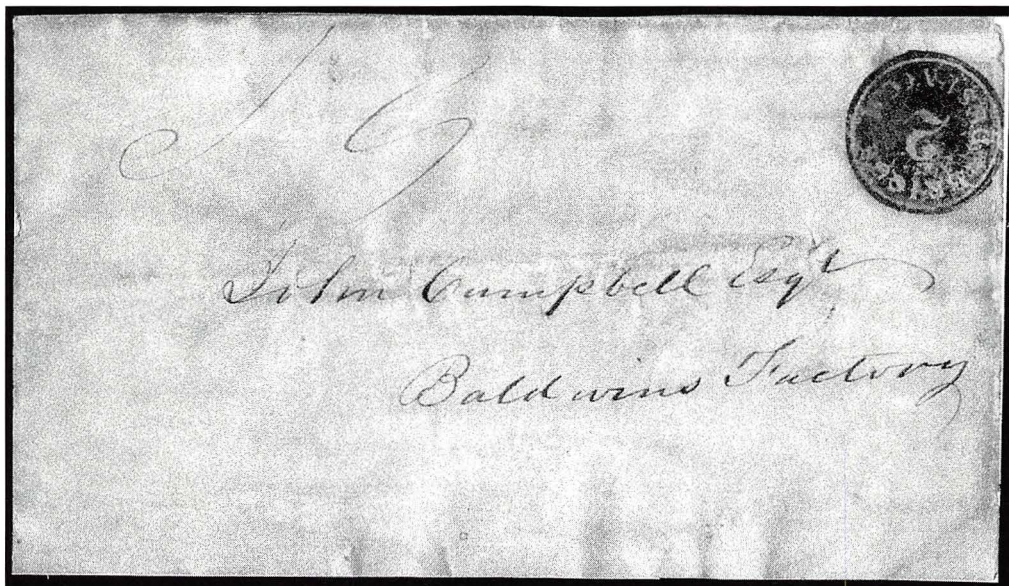 2
John Campbell Esqr
Baldwins Factory